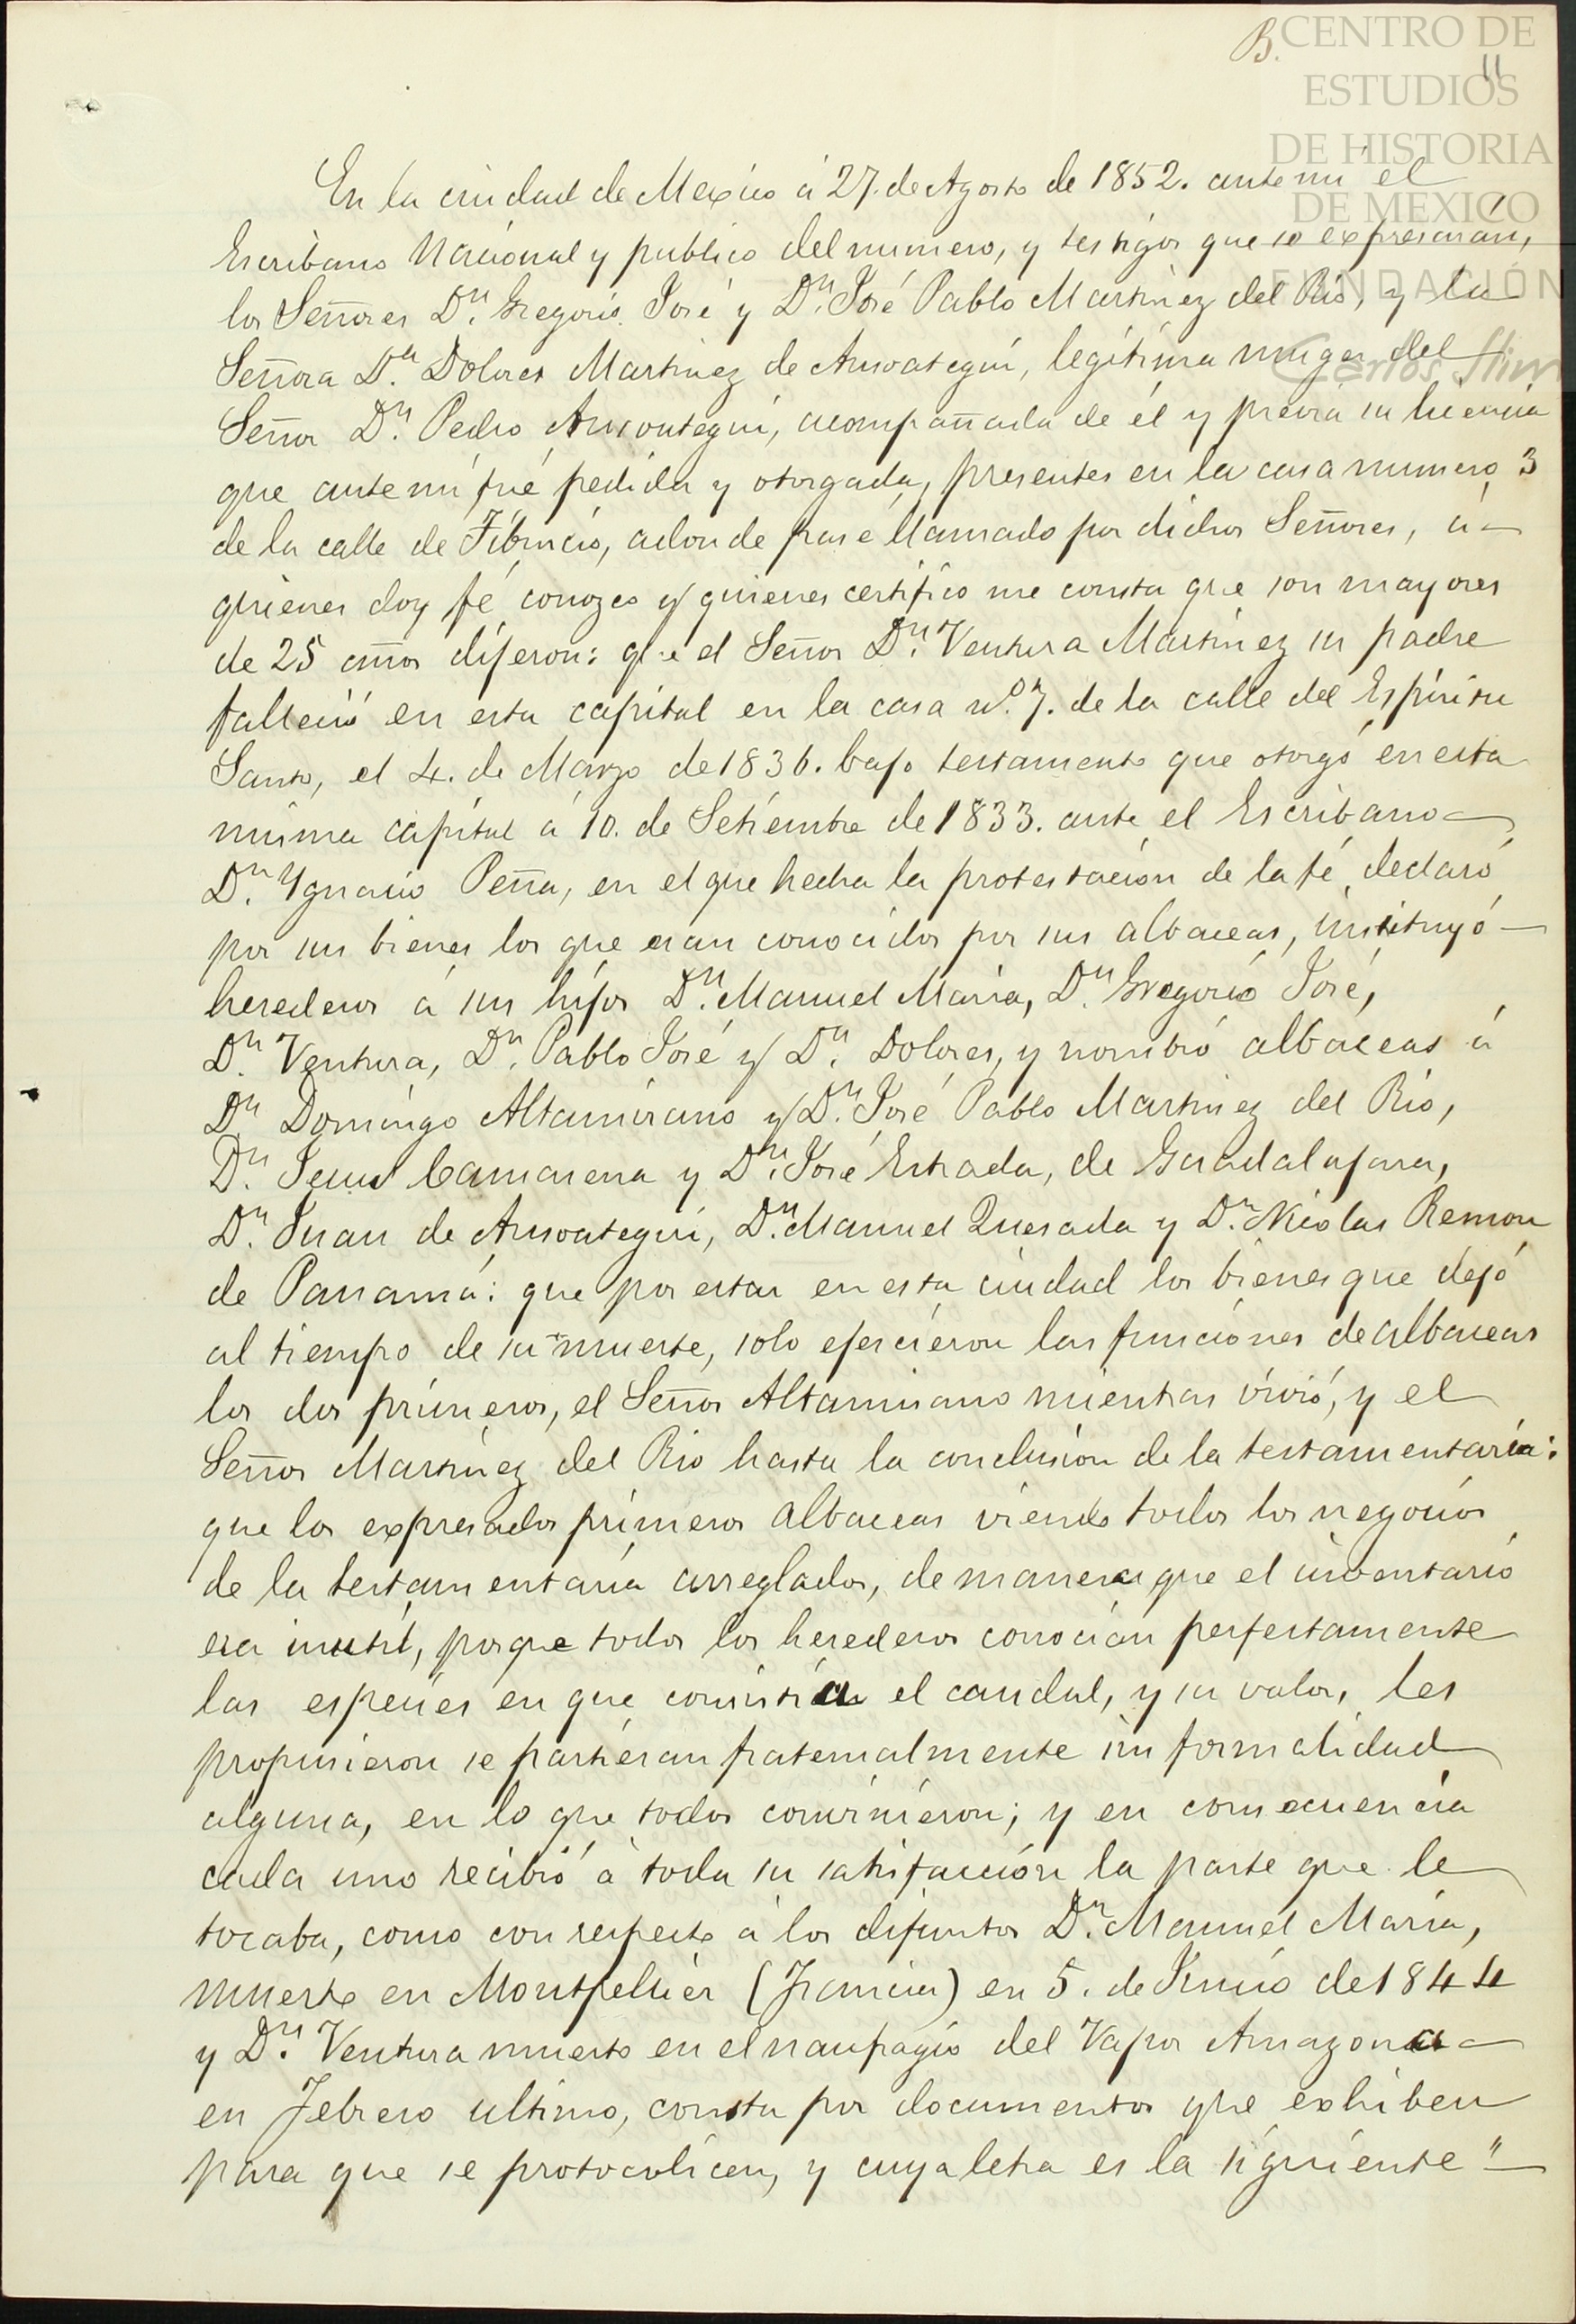 B. CENTRO DE
11
ESTUDIOS
DE HISTORIA
DE MÉXICO
FUNDACIÓN
Carlos Slim
En la ciudad de Mexico á 27. de Agosto de 1852. ante mi el
Escribano Nacional y publico del numero, y testigos que se expresarán,
los Señores Dn. Gregorio José y Dn. José Pablo Martinez del Rio, y la
Señora Da. Dolores Martinez de Ansoategui, legítima muger del
Señor Dn. Pedro Ansoategui, acompañada de él y previa su licencia
que ante mí fué pedida y otorgada, presentes en la casa numero 3
de la calle de Tiburcio, adonde pasé llamado por dichos Señores, á
quienes doy fé conozco y quienes certifico me consta que son mayores
de 25 años dijeron: que el Señor Dn. Ventura Martinez su padre
falleció en esta capital en la casa no. 7. de la calle del Espíritu
Santo, el 4. de Marzo de 1836. bajo testamento que otorgó en esta
misma capital á 10. de Setiembre de 1833. ante el Escribano
Dn. Ygnacio Peña, en el que hecha la protestación de la fé declaró
por sus bienes los que eran conocidos por sus albaceas, instituyó
herederos á sus hijos Dn. Manuel María, Dn. Gregorio José,
Dn. Ventura, Dn. Pablo José y Da. Dolores, y nombró albaceas á
Dn. Domingo Altamirano y Dn. José Pablo Martinez del Rio,
Dn. Jesus Camarena y Dn. José Estrada, de Guadalajara,
Dn. Juan de Ansoategui, Dn. Manuel Quesada y Dn. Nicolas Remon
de Panamá: que por estar en esta ciudad los bienes que dejó
al tiempo de su muerte, solo ejercieron las funciones de albaceas
los dos primeros, el Señor Altamirano mientras vivió, y el
Señor Martinez del Rio hasta la conclusión de la testamentaría:
que los expresados primeros albaceas viendo todos los negocios
de la testamentaría arreglados, de manera que el inventario
era inutil, porque todos los herederos conocían perfectamente
las especies en que consistía el caudal, y su valor, les
propusieron se partieran fraternalmente sin formalidad
alguna, en lo que todos convinieron; y en consecuencia
cada uno recibió á toda su satisfacción la parte que le
tocaba, como con respecto á los difuntos Dn. Manuel María,
muerto en Montpellier (Francia) en 5. de Junio de 1844
y Dn. Ventura muerto en el naufragio del Vapor Amazona
en Febrero ultimo, consta por documentos que exhiben
para que se protocolicen, y cuya letra es la siguiente "